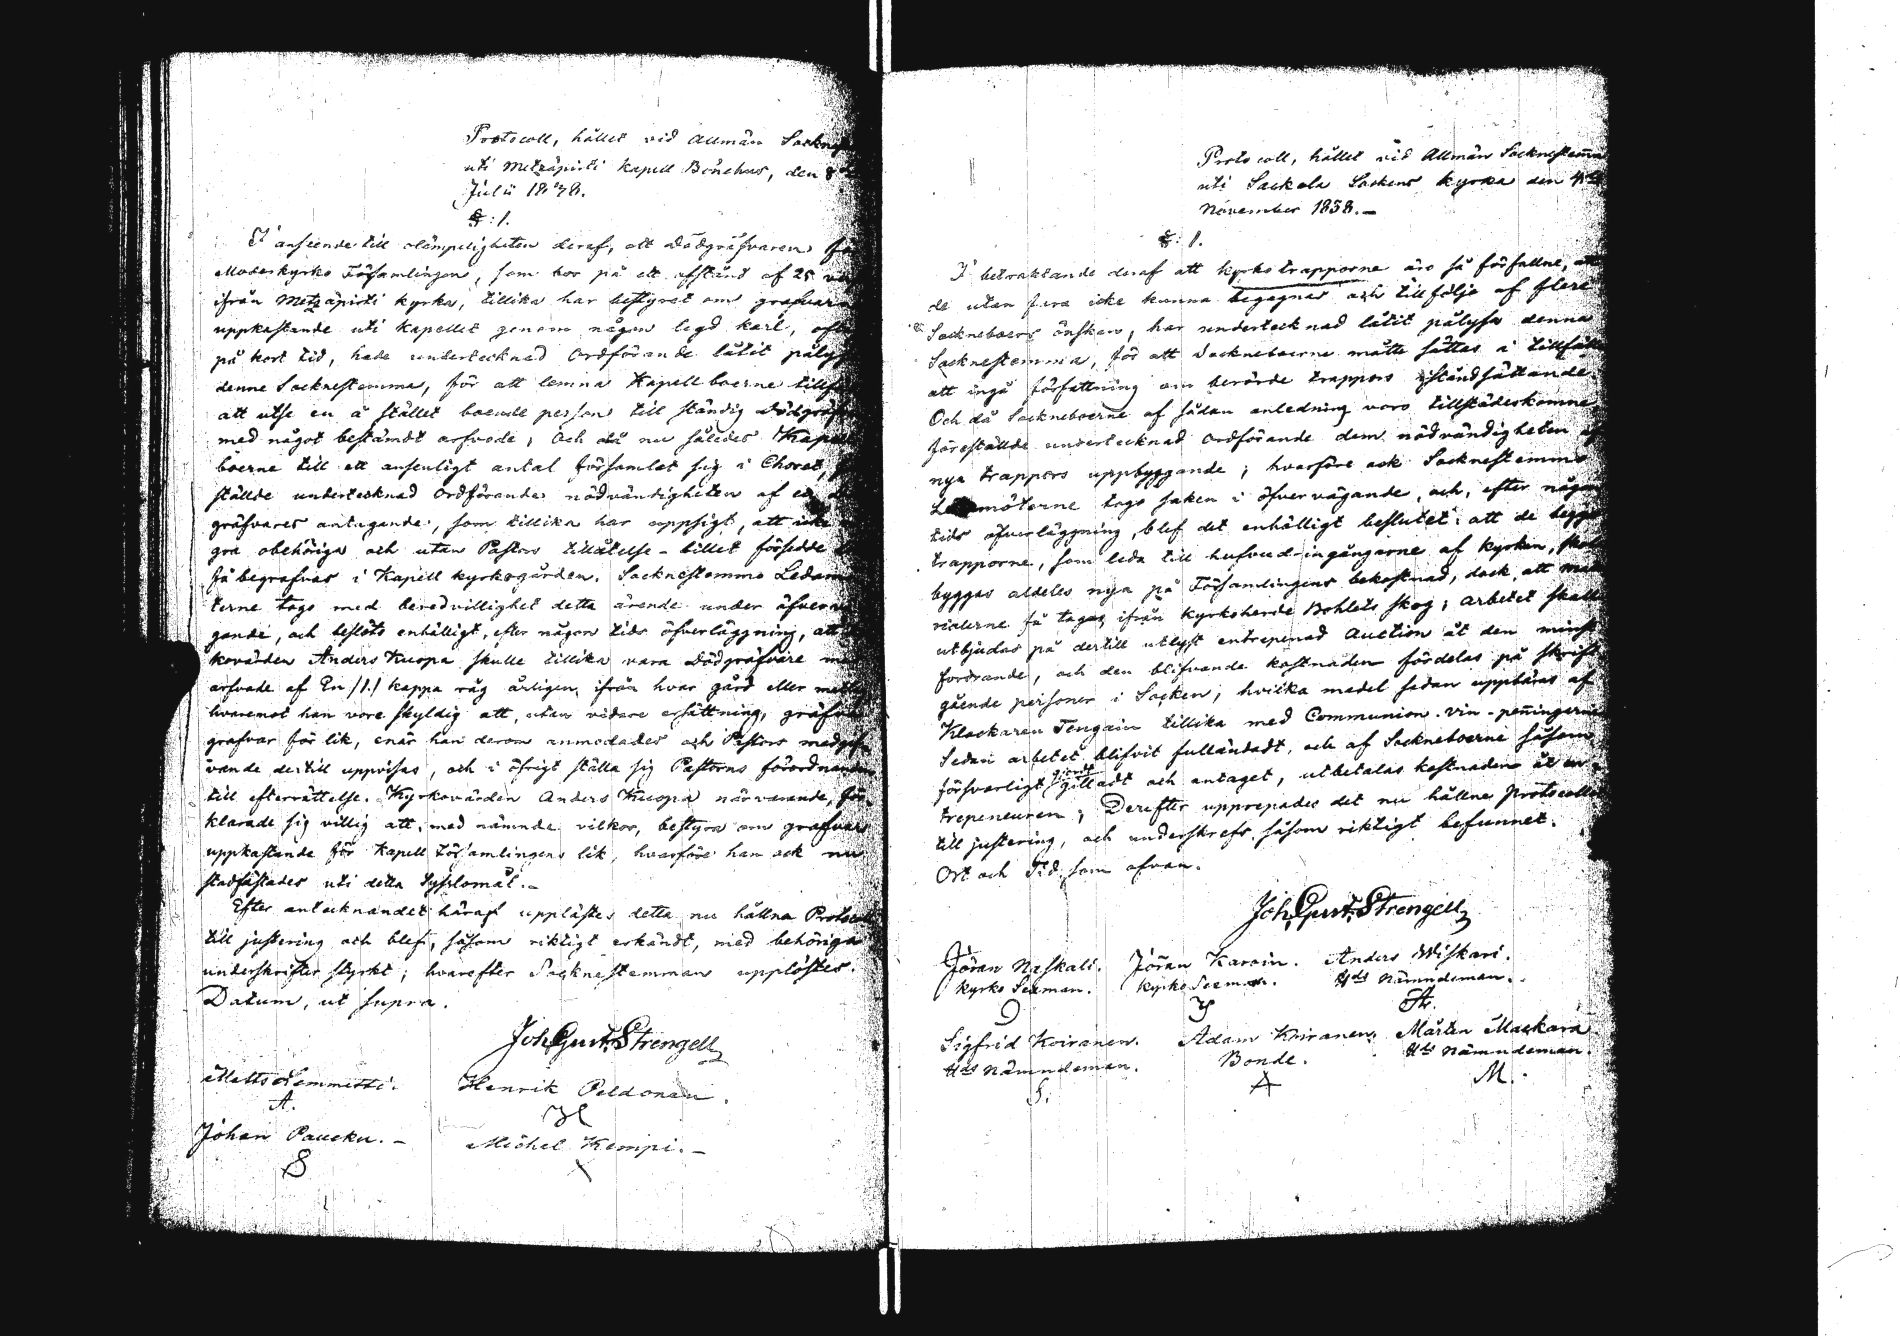 Protocoll, hållet vid allmän Sockne
uti Metzäpirti Kapell Bönehus, den 8
Julii 1838.
§: 1.
I anseende till olämpeligheten deraf, att Dödgräfvaren
Moderkyrko Församlingen, som bor på ett afstånd af 25
ifrån Metzäpirti kyrka, tillika har bestyret om grafvars
uppkastande uti Kapellet genom någon legd karl, ofta
på kort tid, hade undertecknad Ordförande låtit pålysa
denne Socknestemma, för att lemna Kapellboerne tillfä
att utse en å stället boende person till ständig Dödgräf
med något bestämdt arfvode; Och då nu således Kapell
boerne till ett ansenligt antal församlat sig i Choret,
ställde undertecknad Ordförande nödvändigheten af en
gräfvares antagande, som tillika har uppsigt, att icke
gra obehöriga och utan Pastors tillåtelse-billet försedde
få begrafvas i Kapell kyrkogården. Socknestemmo Ledam
terne togo med beredvillighet detta ärende under öfver
gande, och beslöts enhälligt, efter någon tids öfverläggning, att
kovärden Anders Kuopa skulle tillika vara Dödgräfvare
arfvode af En /1./ kappa råg årligen ifrån hvar gård eller
hvaremot han vore skyldig att, utan vidare ersättning, gräfva
grafvar för lik, enär han derom anmodades och Pastors medgif
vande dertill uppvisas, och i öfrigt ställa sig Pastorns förordnanden
till efterrättelse. Kyrkovärden Anders Kuopa närvarande, för
klarade sig villig att, med nämnde vilkor, bestyra om grafvars
uppkastande för Kapell Församlingens lik, hvarföre han ock nu
stadfästades uti detta Sysslomål.-
Efter antecknandet häraf upplästes detta nu hållna Protocoll
till justering och blef, såsom riktigt erkändt, med behöriga
underskrifter styrkt; hvarefter Socknestemman upplöstes.
Datum, ut supra.
Joh. Gust. Strengell
Matts Lemmitti.
Henrik Peldonen.
A.
H
Johan Paucku.-
Michel Kempi.-
S
Protocoll, hållet vid Allmän Socknestemma
uti Sackola Sockens kyrka den 4de
November 1838.-
§: 1.
I betraktande deraf att kyrkotrapporne äro så förfallne, att
de utan fara icke kunna begagnas och till följe af flere
Sockneboers önskan, har undertecknad låtit pålysa denna
Socknestemma, för att Sockneboerne måtte sättas i tillfälle
att ingå författning om berörde trappors iståndsättande.
Och då Sockneboerne af sådan anledning voro tillstädeskomne,
föreställde undertecknad Ordförande dem nödvändigheten af
nya trappors uppbyggande; hvarföre ock Socknestemmo
Ledamöterne togo saken i öfvervägande, och, efter någon
tids öfverläggning, blef det enhälligt beslutet: att de begge
trapporne, som leda till hufvud-ingångarne af kyrkan, skola
byggas aldeles nya på Församlingens bekostnad, dock, att mate
rialerne få tagas ifrån kyrkoherde Bohlets skog; arbetet skall
utbjudas på dertill utlyst entrepenad Auction åt den minst
fordrande, och den blifvande kostnaden fördelas på skrift
gående personer i Socken; hvilka medel sedan uppbäras af
Klockaren Tengain tillika med Communion-vin-peningarne
Sedan arbetet blifvit fulländadt, och af Sockneboerne såsom
försvarligt gjordt gilladt och antaget, utbetalas kostnaden åt en
trepeneuren; Derefter upprepades det nu hållne Protocollet
till justering, och underskrefs såsom riktigt befunnet.
Ort och Tid som ofvan.
Joh. Gust. Strengell
Jöran Naskali. Jöran Karain. Anders Wiskari.
kyrko Sexman. kyrko Sexman. Hds Nämndeman.
Sigfrid Koiranen. Adam Koiranen. Mårten Mackara.
Hds Nämndeman. Bonde. Hds Nämndeman.
S. A M.